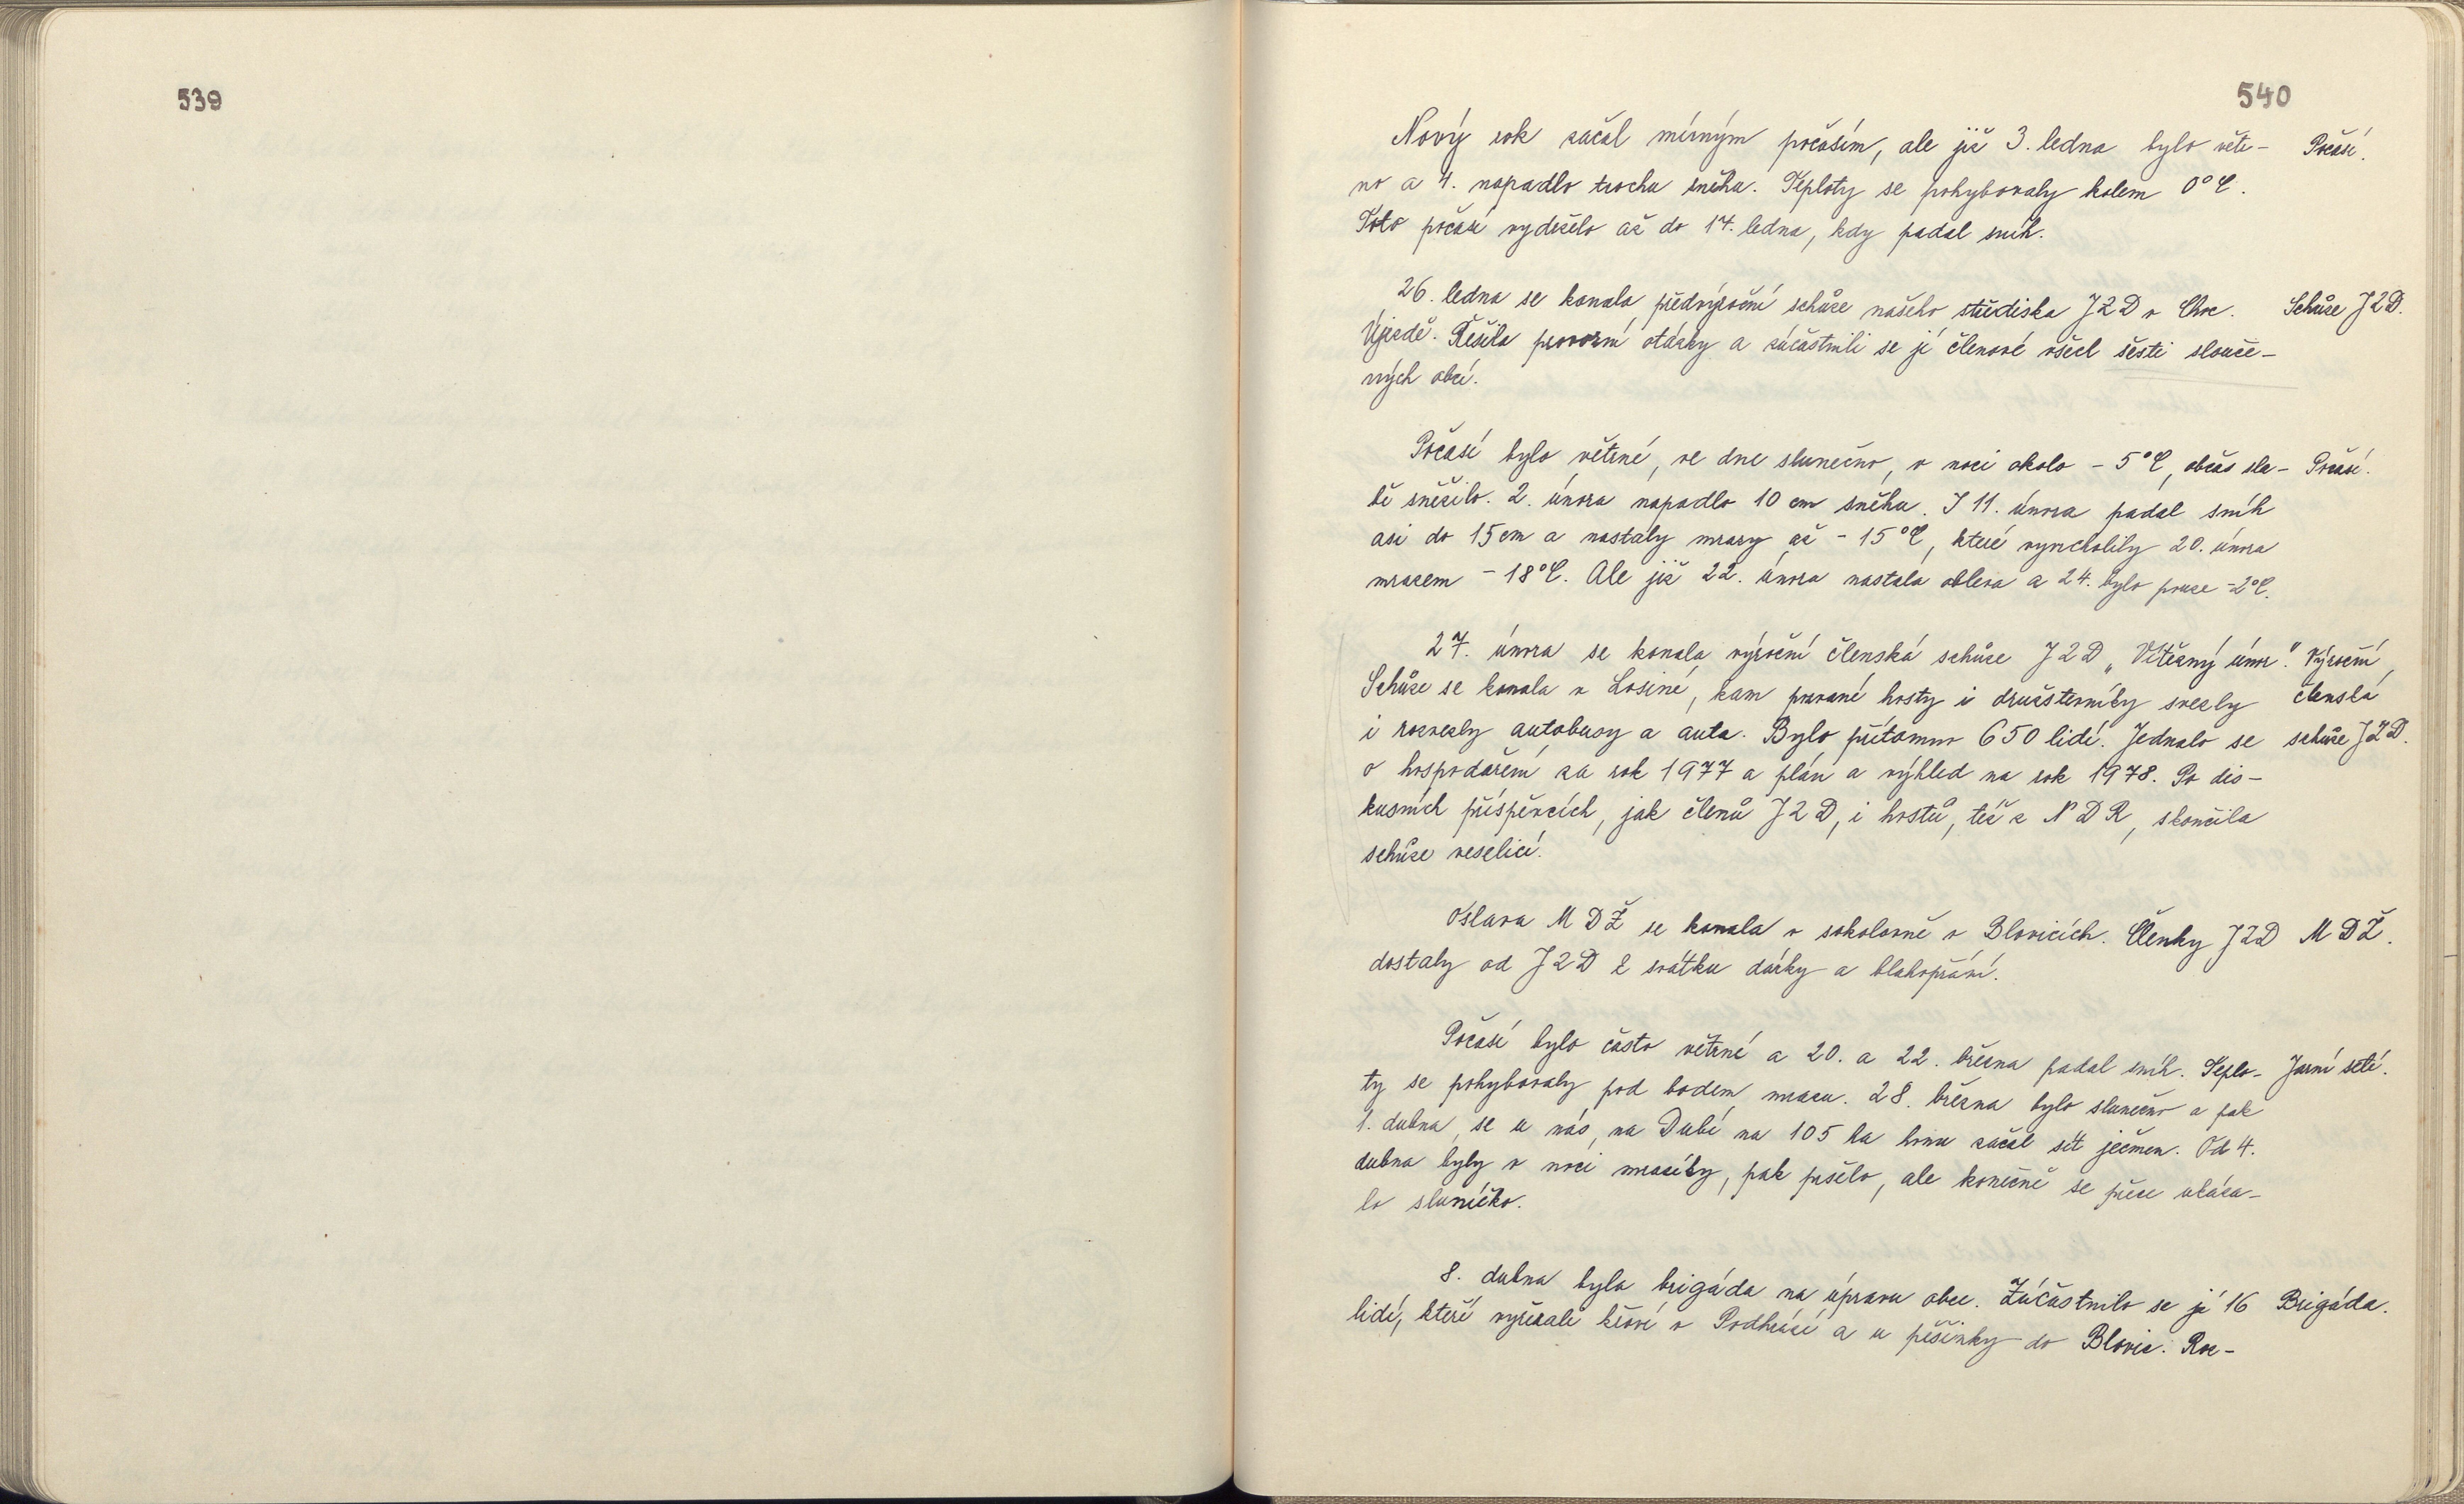 539
540
Nový rok začal mírným počasím, ale již 3. ledna bylo větr-
no a 4. napadlo trochu sněhu. Teploty se pohybovaly kolem 0°C.
Toto počasí vydrželo až do 14. ledna, kdy padal sníh.
Počasí.
26. ledna se konala předvýroční schůze našeho střediska JZD v Choc.
Újezdě. Řešila provozní otázky a zúčastnili se jí členové všech šesti slouče-
ných obcí.
Schůze JZD.
Počasí bylo větrné, ve dne slunečno, v noci okolo - 5°C, občas sla-
bě sněžilo. 2. února napadlo 10 cm sněhu. I 11. února padal sníh
asi do 15 cm a nastaly mrazy až - 15°C, které vyvrcholily 20. února
mrazem - 18°C. Ale již 22. února nastala obleva a 24. bylo pouze -2°C.
Počasí.
27. února se konala výroční členská schůze JZD „Vítězný únor."
Schůze se konala v Losiné, kam pozvané hosty i družstevníky svezly
i rozvezly autobusy a auta. Bylo přítomno 650 lidí. Jednalo se
o hospodaření za rok 1977 a plán a výhled na rok 1978. Po dis-
kusních příspěvcích, jak členů JZD, i hostů, též z NDR, skončila
schůze veselicí.
Výroční
členská
schůze JZD.
Oslava MDŽ se konala v sokolovně v Blovicích. Členky JZD
dostaly od JZD k svátku dárky a blahopřání.
MDŽ.
Počasí bylo často větrné a 20. a 22. března padal sníh. Teplo-
ty se pohybovaly pod bodem mrazu. 28. března bylo slunečno a pak
1. dubna se u nás na Dubí na 105 ha honu začal sít ječmen. Od 4.
dubna byly v noci mrazíky, pak pršelo, ale konečně se přece ukáza-
lo sluníčko.
Jarní setí.
8. dubna byla brigáda na úpravu obce. Zúčastnilo se jí 16
lidí, kteří vyřezali křoví v Podhrází a u pěšinky do Blovic. Roz-
Brigáda.